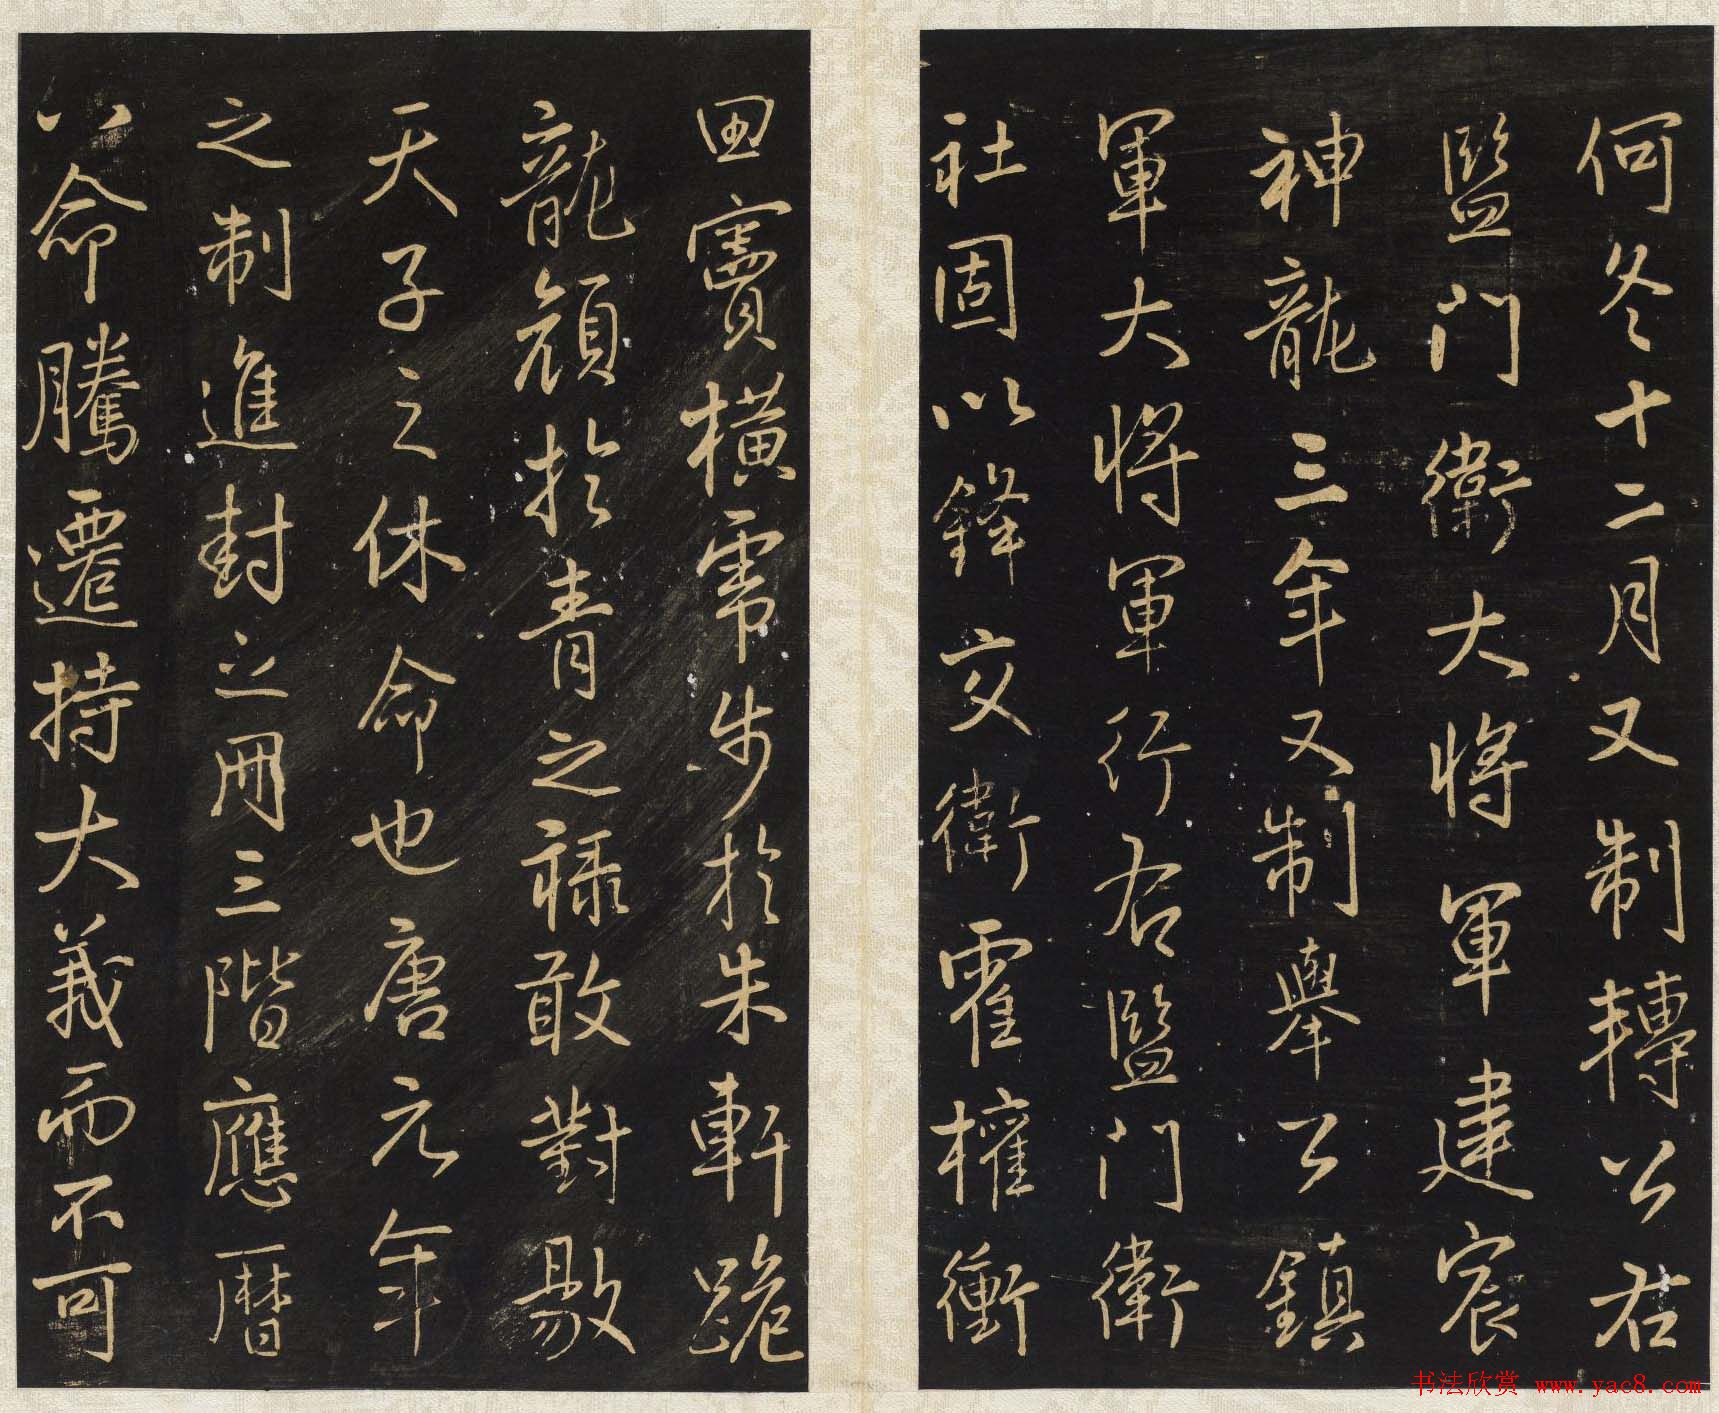 何冬十二月又制轉公右
監門衛大將軍建宸
神龍三年又制舉公鎮
軍大將軍行右監門衛
社固以鋒交衛霍權衝
田竇橫帶步於朱軒跪
龍顏於青之祿敢對敭
天子之休命也唐元年
之制進封之冊三階應曆
以命騰遷持大義而不可
书法欣赏 www.yac8.com